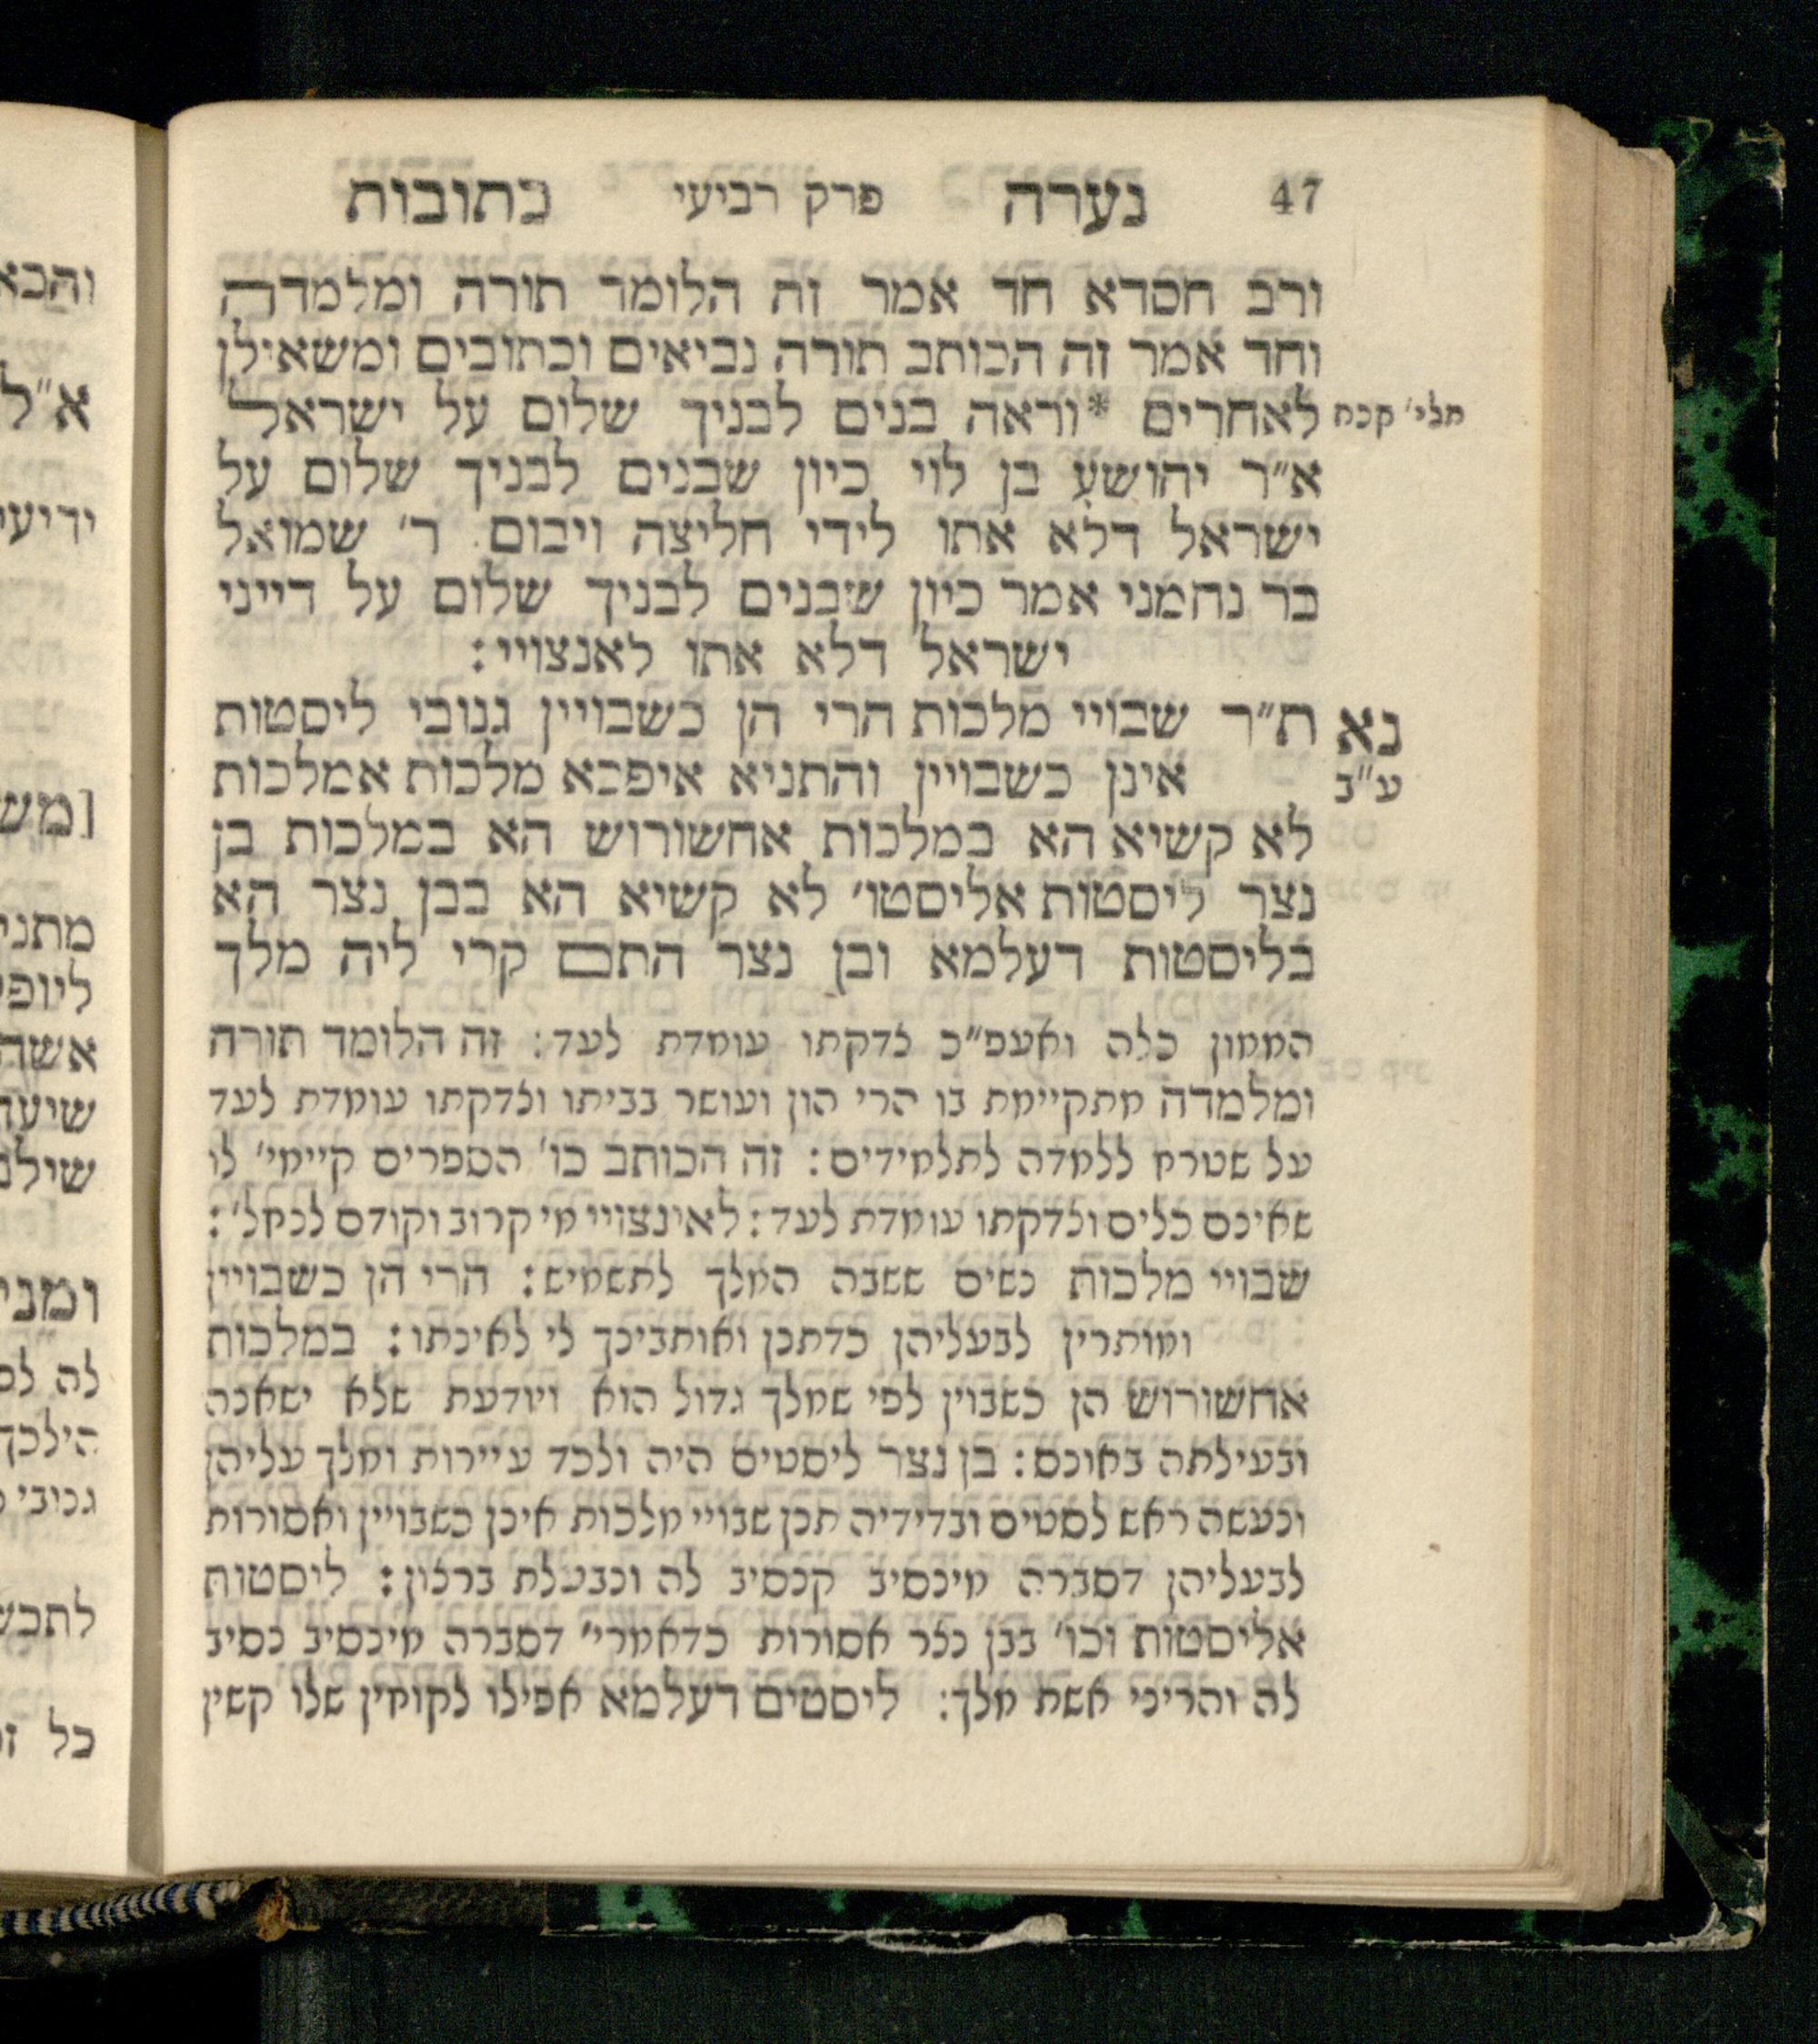 47 נערה פרק רביעי כתובות
ורב חסדא חד אמר זה הלומד תורה ומלמדה
וחד אמר זה הכותב תורה נביאים וכתובים ומשאילן
תלי' קכח לאחרים *וראה בנים לבניך שלום על ישראל
א"ר יהושע בן לוי כיון שבנים לבניך שלום על
ישראל דלא אתו לידי חליצה ויבום ר' שמואל
בר נחמני אמר כיון שבנים לבניך שלום על דייני
ישראל דלא אתו לאנצויי:
נא ת"ר שבויי מלכות הרי הן כשבויין גנובי ליסטות
ע"ב אינן כשבויין והתניא איפכא מלכות אמלכות
לא קשיא הא במלכות אחשורוש הא במלכות בן
נצר ליסטות אליסטו' לא קשיא הא בבן נצר הא
בליסטות דעלמא ובן נצר התם קרי ליה מלך
הממון כלה ואעפ"כ צדקתו עומדת לעד: זה הלומד תורה
ומלמדה מתקיימת בו הרי הון ועושר בביתו וצדקתו עומדת לעד
על שטרח ללמדה לתלמידים: זה הכותב כו' הספרים קיימי' לו
שאינם כלים וצדקתו עומדת לעד: לאינצויי מי קרוב וקודם לנחל':
שבויי מלכות נשים ששבה המלך לתשמיש: הרי הן כשבויין
ומותרין לבעליהן כדתנן ואותביניך לי לאינתו: במלכות
אחשורוש הן כשבוין לפי שמלך גדול הוא ויודעת שלא ישאנה
ובעילתה באונס: בן נצר ליסטים היה ולכד עיירות ומלך עליהן
ונעשה ראש לסטים ובדידיה תנן שבויי מלכות אינן כשבויין ואסורות
לבעליהן דסברה מינסיב קנסיב לה ונבעלת ברצון: ליסטות
אליסטות וכו' בבן נצר אסורות כדאמרי' דסברה מינסיב נסיב
לה והריני אשת מלך: ליסטים דעלמא אפילו לקוחין שלו קשין